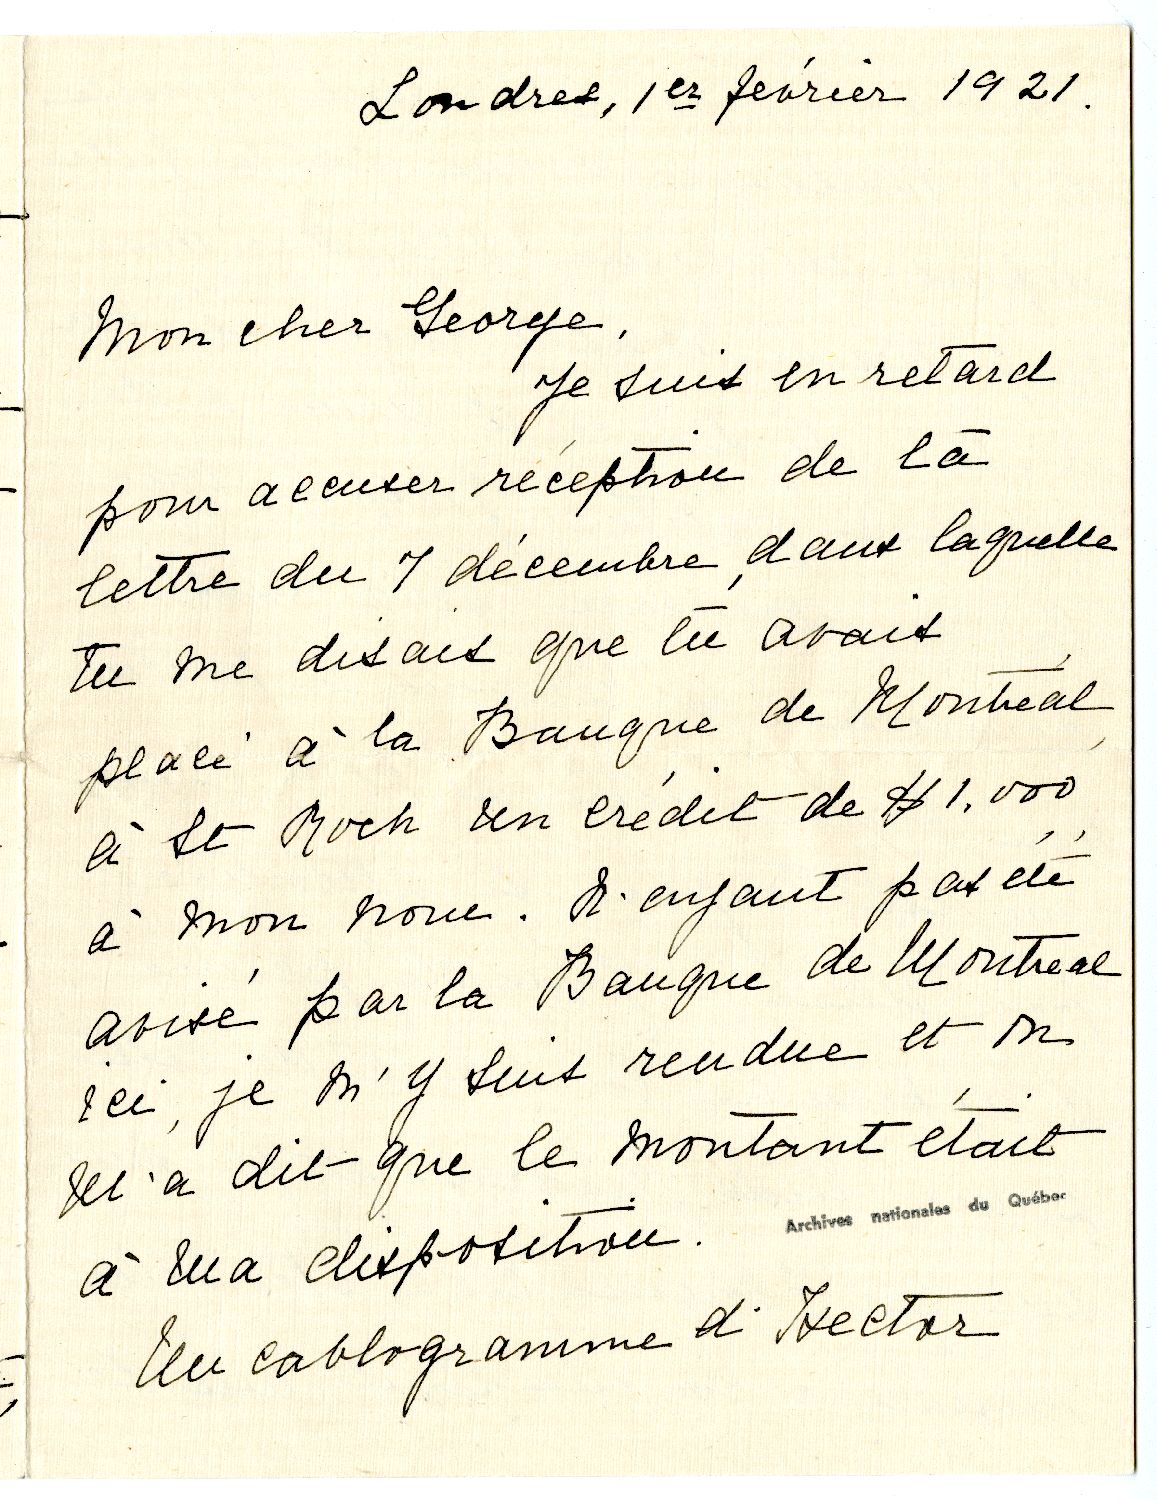 Londres, 1er février 1921.
Mon cher George,
Je suis en retard
pour accuser réception de ta
lettre du 7 décembre, dans laquelle
tu me disais que tu avais
placé à la Banque de Montréal
à St Roch un crédit de $1,000
à mon nom. N'ayant pas été
avisé par la Banque de Montréal
ici, je m'y suis rendue et on
m'a dit que le montant était
à ma disposition.
Archives nationales du Québec
Un cablogramme d'Hector